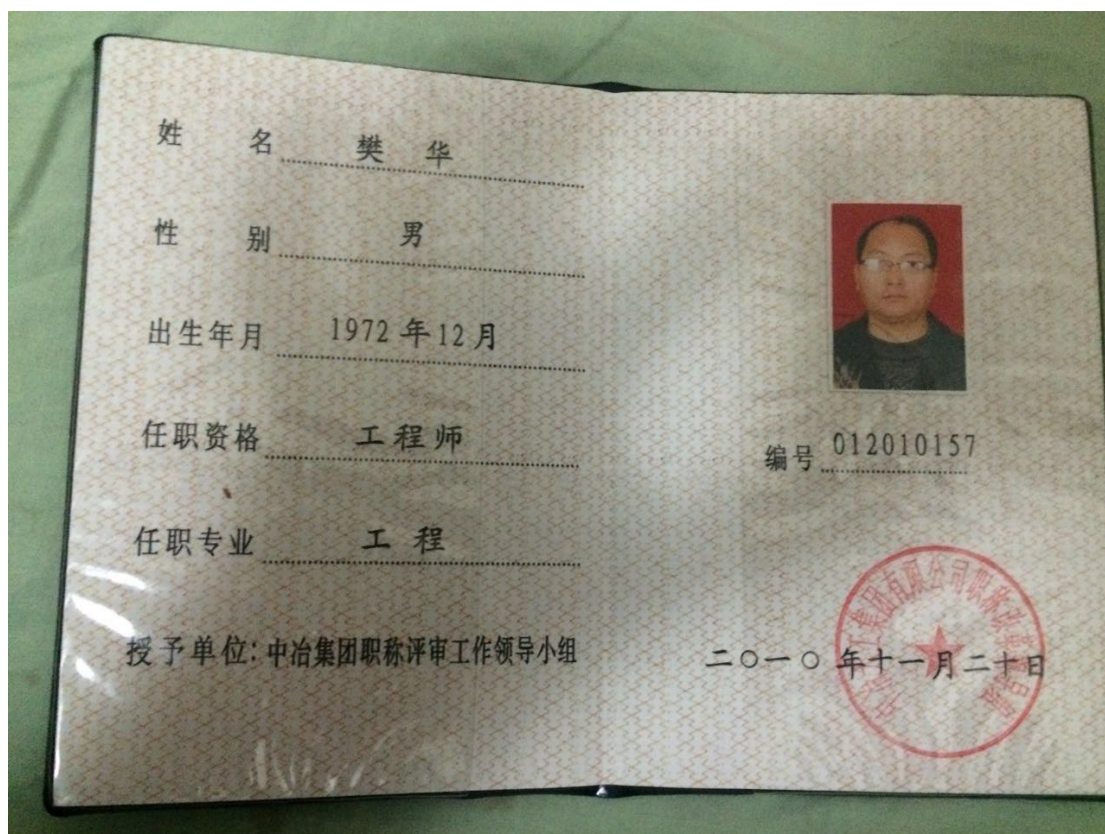 姓 名 樊 华
性 别 男
出生年月 1972年12月
任职资格 工程师
任职专业 工程
授予单位:中冶集团职称评审工作领导小组
编号 012010157
二〇一〇年十一月二十日